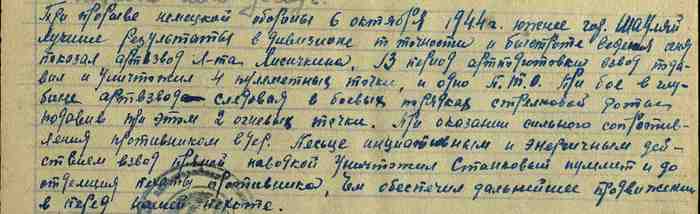 При прорыве немецкой обороны 6 октября 1944 г. южнее гор. Шауляй
лучшие результаты в дивизионе по точности и быстроте ведения огня
показал артвзвод л-та Лисичкина. В период артподготовки взвод пода-
вил и уничтожил 4 пулеметных точки, и одно П.Т.О. При бое в глу-
бине артвзвода следовал в боевых порядках стрелковой роты
подавив при этом 2 огневых точки. При оказании сильного сопротив-
ления противником в дер. инциативным и энергичным дей-
ствием взвод прямой наводкой уничтожил станковый пулемет и до
отделения пехоты противника, чем обеспечил дальнейшее продвижение
в перед нашей пехоте.